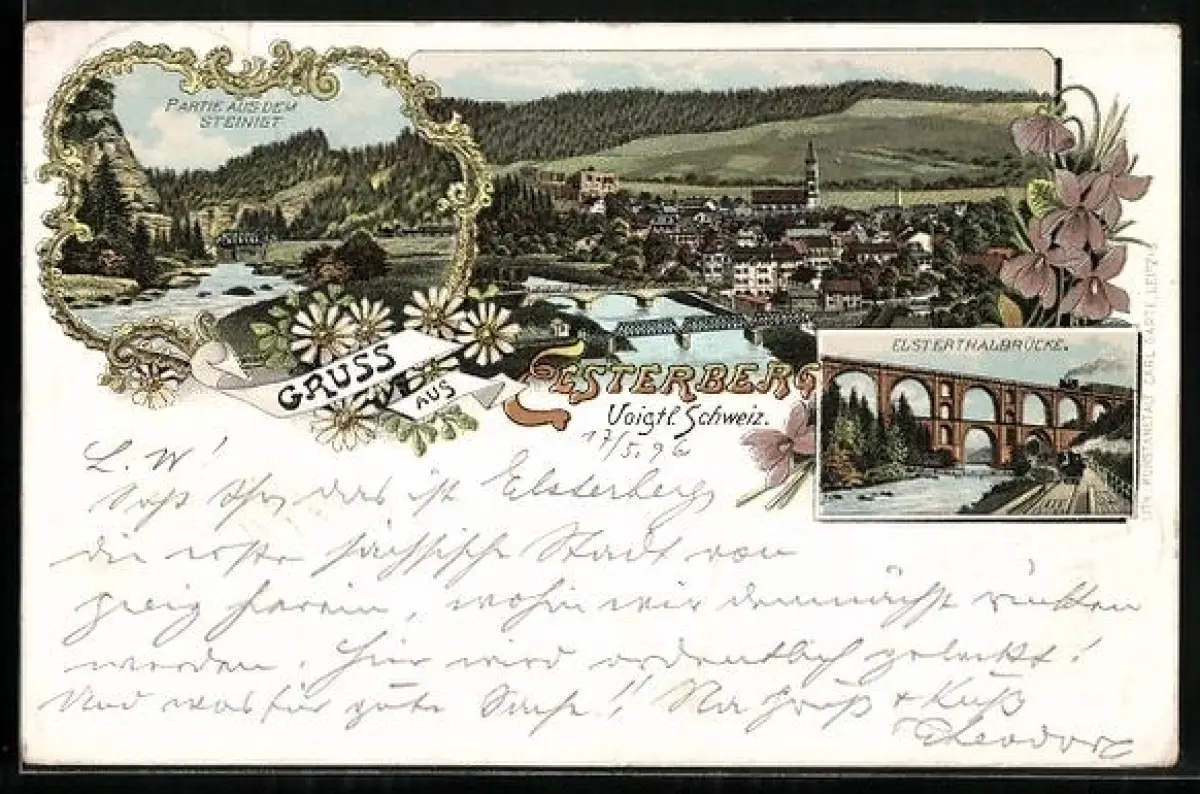 PARTIE AUS DEM
STEINIGT.
GRUSS
AUS
ELSTERBERG
Voigtl. Schweiz.
ELSTERTHALBRÜCKE.
LITH. KUNSTANSTALT CARL GARTE, LEIPZIG
17/5.96
L. W!
das ist Elsterberg
die erste sächsische Stadt von
herein, wohin wir demnächst
werden. Hier wird ordentlich
Und was für gute Sachen!! Na Gruß + Kuß
Theodor